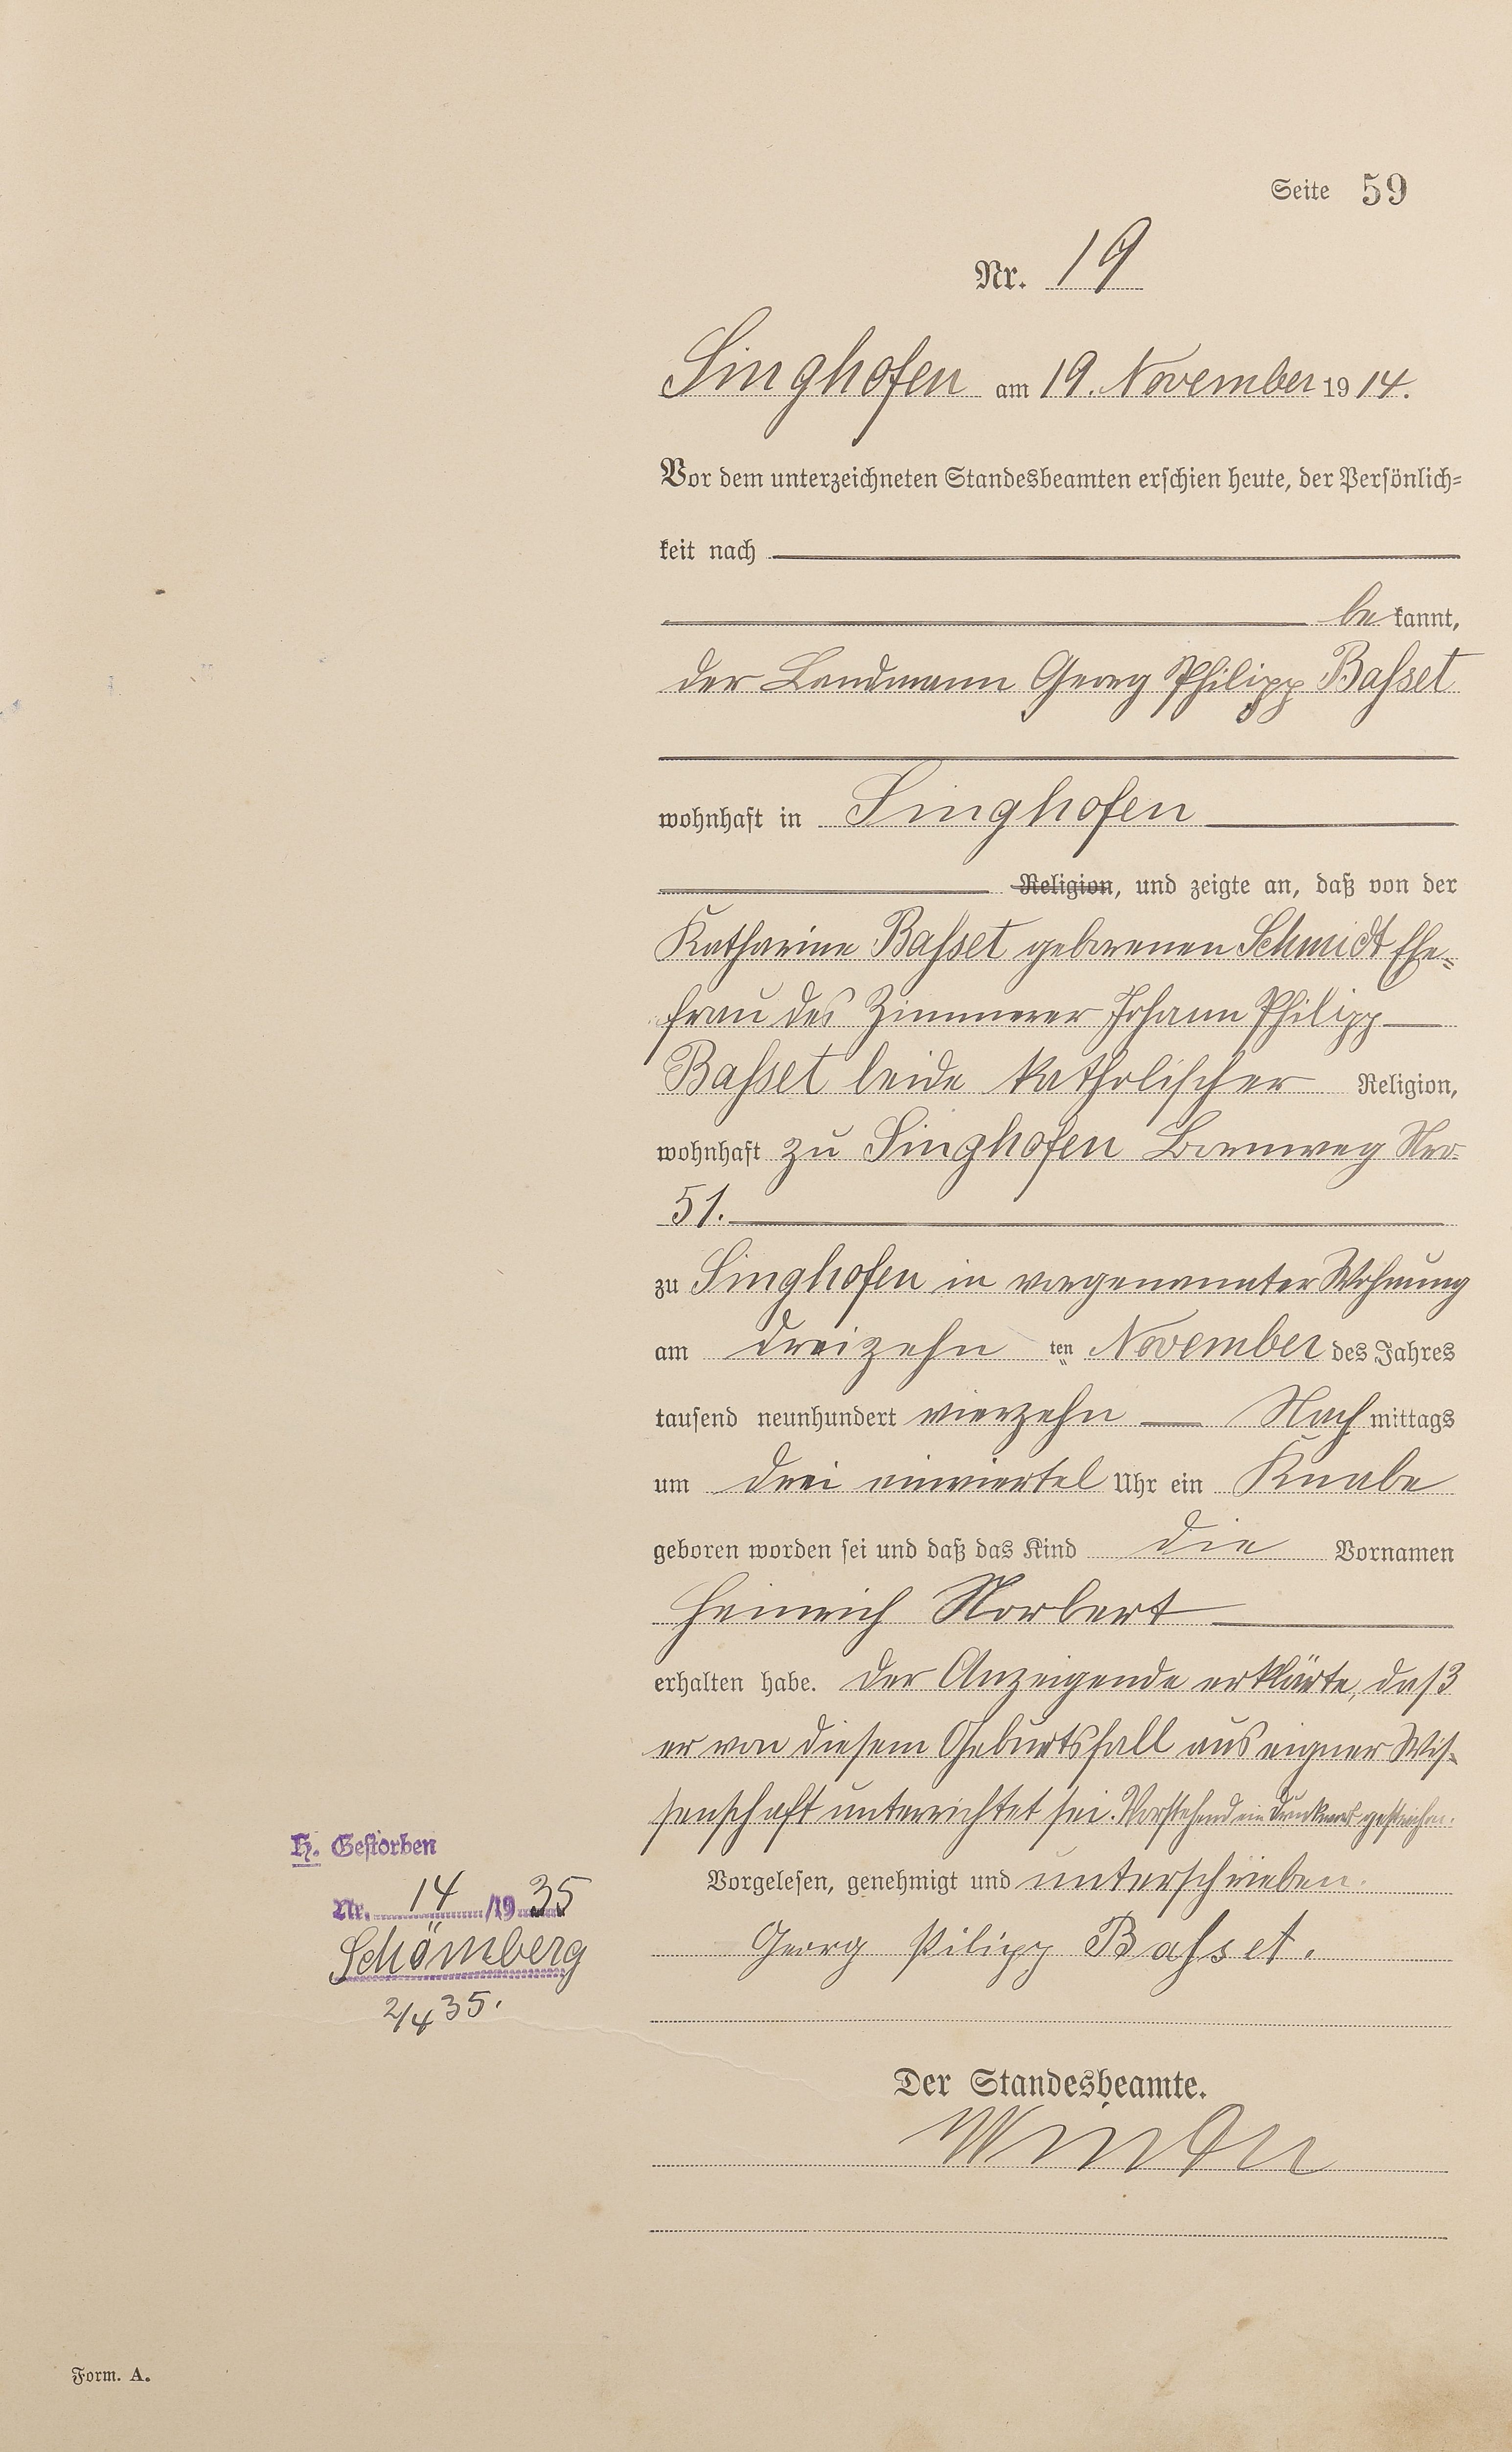 Seite 59
Nr. 19
Singhofen am 19. November 1914.
Vor dem unterzeichneten Standesbeamten erschien heute, der Persönlich=
keit nach
bekannt,
der Landmann Georg Philipp Basset
wohnhaft in Singhofen
Religion, und zeigte an, daß von der
Katharine Basset geborenen Schmidt Ehe=
frau des Zimmerer Johann Philipp
Basset beide katholischer Religion,
wohnhaft zu Singhofen Bornweg Nro.
51.
zu Singhofen in vorgenannter Wohnung
am dreizehn ten November des Jahres
tausend neunhundert vierzehn Nachmittags
um drei einviertel Uhr ein Knabe
geboren worden sei und daß das Kind die Vornamen
Heinrich Norbert
erhalten habe. Der Anzeigende erklärte, daß
er von diesem Geburtsfall aus eigner Wis-
senschaft unterrichtet sei. Vorstehend ein Druckwort gestrichen.
Vorgelesen, genehmigt und unterschrieben.
Georg Pilipp Basset.
H. Gestorben
Nr. 14/1935
Schömberg
2/4 35.
Der Standesbeamte.
Form. A.